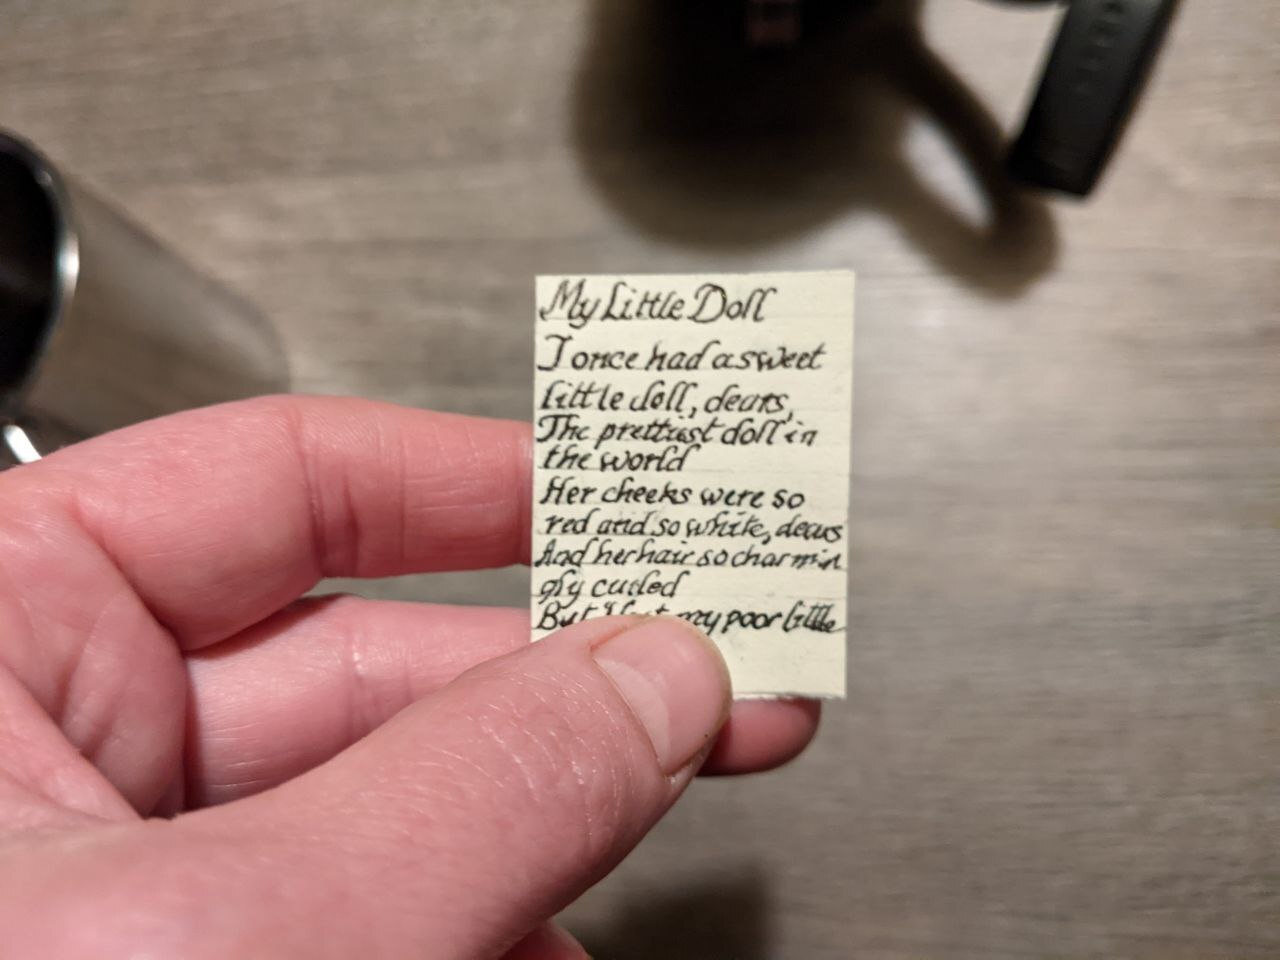 My Little Doll
I once had a sweet
little doll, dears,
The prettiest doll in
the world
Her cheeks were so
red and so white, dears
And her hair so charmin
gly curled
But I lost my poor little